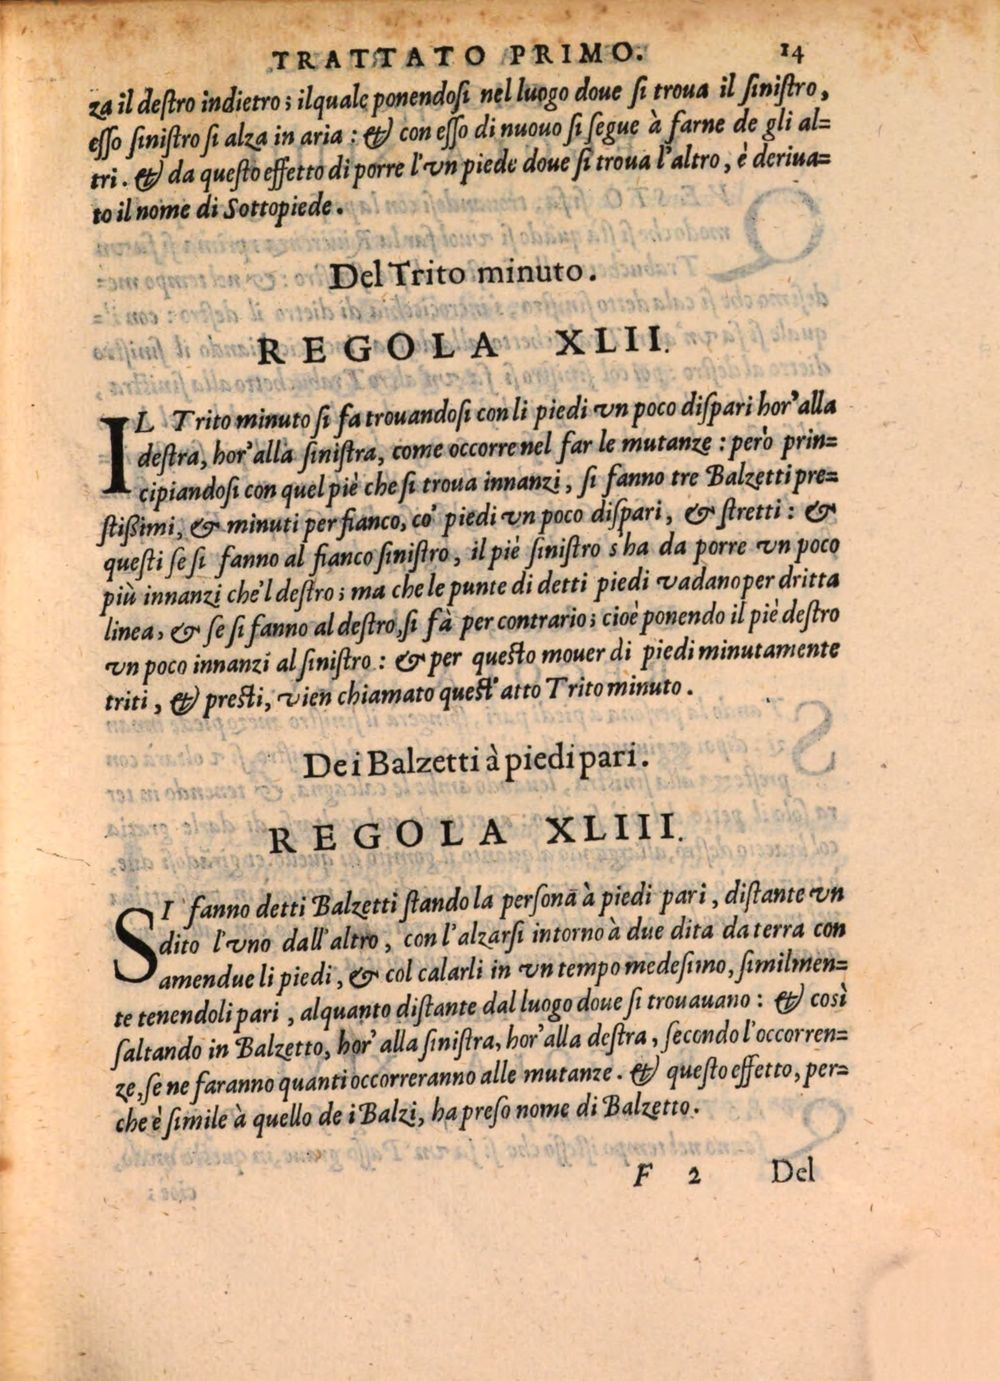 TRATTATO PRIMO. 14
za il deſtro indietro; ilquale ponendoſi nel luogo doue ſi troua il ſiniſtro,
eſſo ſiniſtro ſi alza in aria: & con eſſo di nuouo ſi ſegue à farne de gli al=
tri. & da queſto effetto di porre l'vn piede doue ſi troua l'altro, è deriua=
to il nome di Sottopiede.
Del Trito minuto.
REGOLA XLII.
IL Trito minuto ſi fa trouandoſi con li piedi vn poco diſpari hor'alla
deſtra, hor'alla ſiniſtra, come occorre nel far le mutanze: però prin=
cipiandoſi con quel piè che ſi troua innanzi, ſi fanno tre Balzetti pre=
ſtiſsimi, & minuti per fianco, co' piedi vn poco diſpari, & ſtretti: &
queſti ſe ſi fanno al fianco ſiniſtro, il piè ſiniſtro s'ha da porre vn poco
più innanzi che'l deſtro; ma che le punte di detti piedi vadano per dritta
linea, & ſe ſi fanno al deſtro, ſi fà per contrario; cioè ponendo il piè deſtro
vn poco innanzi al ſiniſtro: & per queſto mouer di piedi minutamente
triti, & preſti, vien chiamato queſt'atto Trito minuto.
De i Balzetti à piedi pari.
REGOLA XLIII.
SI fanno detti Balzetti ſtando la perſona à piedi pari, diſtante vn
dito l'vno dall'altro, con l'alzarſi intorno à due dita da terra con
amendue li piedi, & col calarli in vn tempo medeſimo, ſimilmen=
te tenendoli pari, alquanto diſtante dal luogo doue ſi trouauano: & così
ſaltando in Balzetto, hor'alla ſiniſtra, hor'alla deſtra, ſecondo l'occorren=
ze, ſe ne faranno quanti occorreranno alle mutanze. & queſto effetto, per=
che è ſimile à quello de i Balzi, ha preſo nome di Balzetto.
F 2 Del